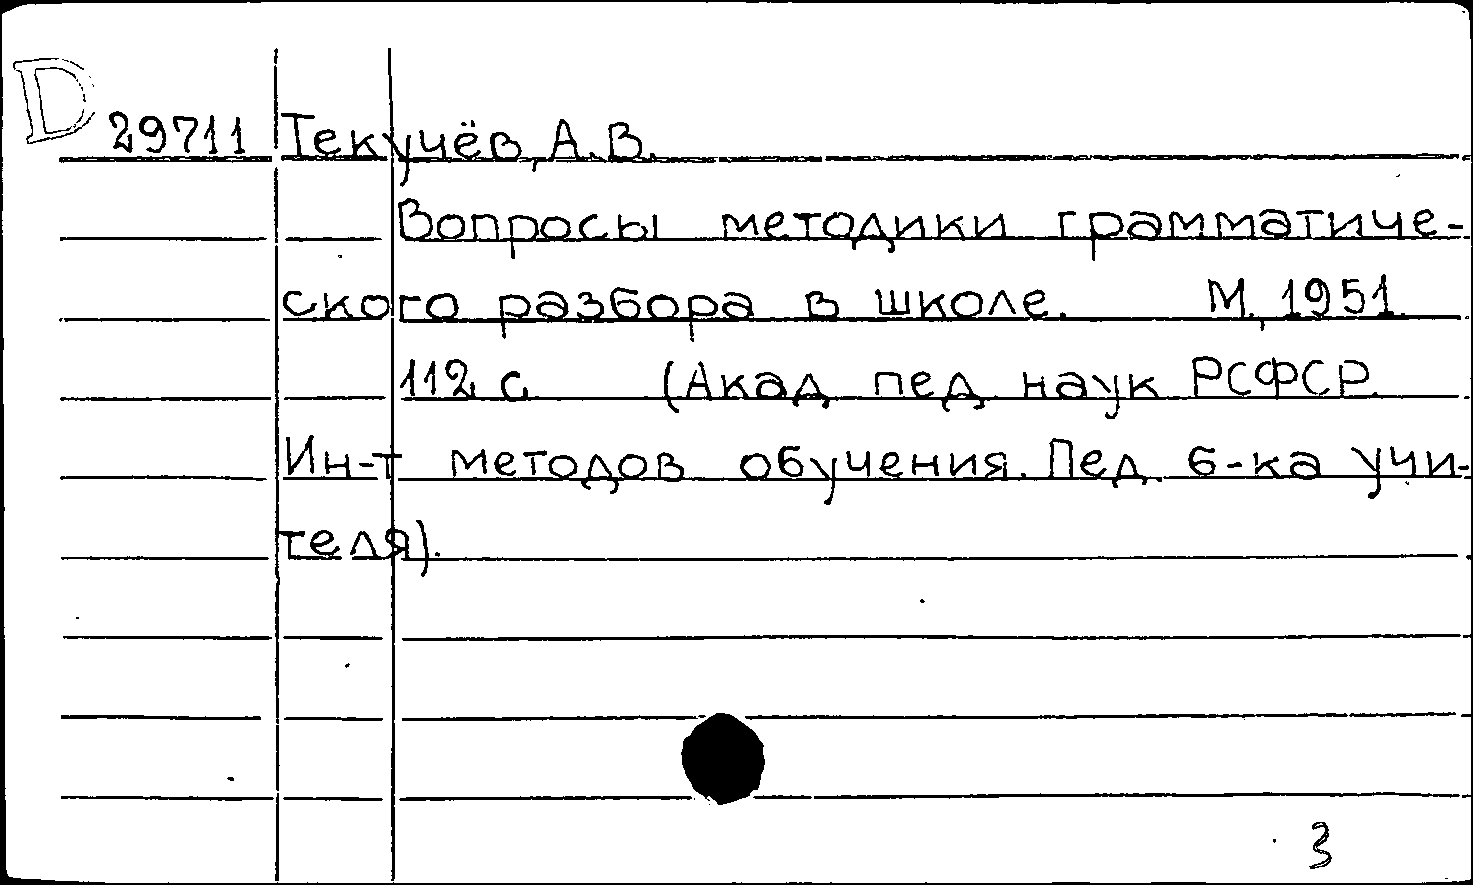 D 29711 Текучёв, А.В.
Вопросы методики грамматиче-
ского разбора в школе. М., 1951.
112 с. (Акад. пед. наук РСФСР.
Ин-т методов обучения. Пед. б-ка учи-
теля).
3